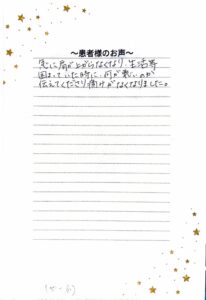 ～患者様のお声～
急に肩が上がらなくなり、生活等
困っていた時に、何が悪いのか
伝えてくださり痛みがなくなりました。